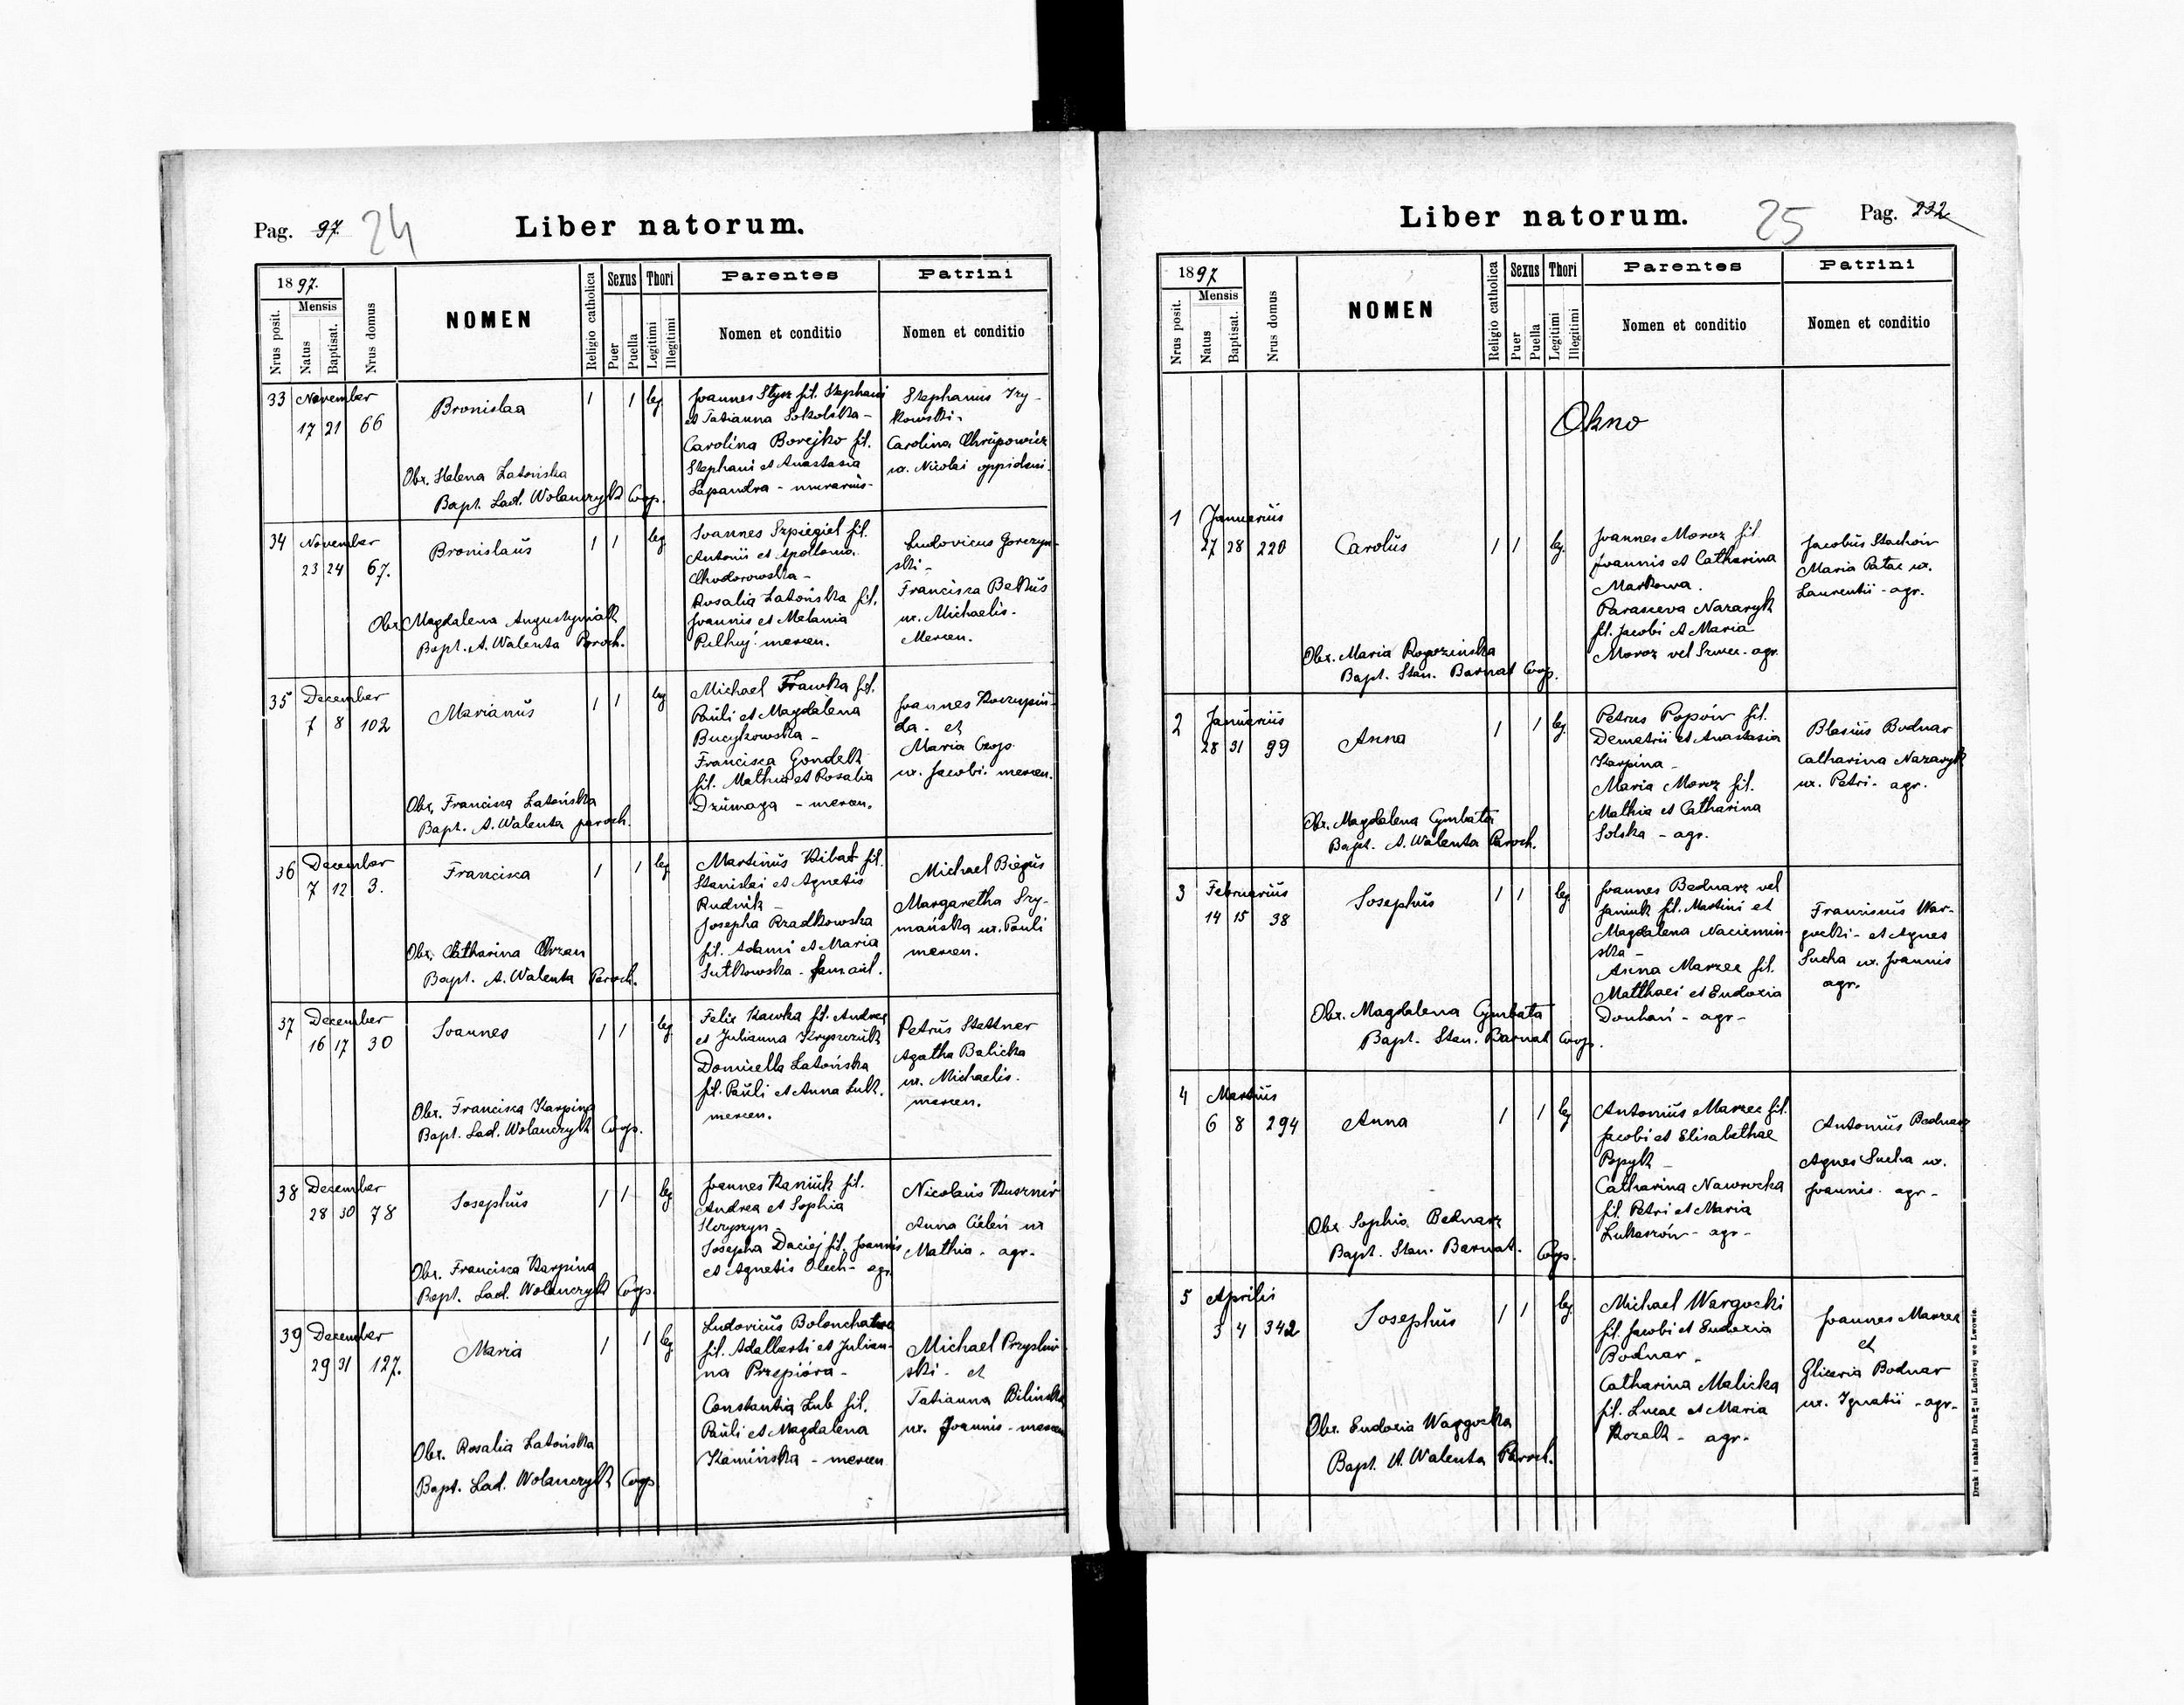 Pag. 97. 24
Liber natorum.
1897.
Nrus posit.
Mensis
Natus
Baptisat.
Nrus domus
NOMEN
Religio catholica
Sexus
Puer
Puella
Thori
Legitimi
Illegitimi
Parentes
Nomen et conditio
Patrini
Nomen et conditio
33 November
17 21 66
Bronislaa
1 1 leg.
Obx. Helena Latońska
Bapt. Lad. Wolanczyk Coop.
Joannes Stysz fil. Stephani
et Tatianna Sokolska -
Carolina Borejko fil.
Stephani et Anastasia
Lapandra - murarius -
Stephanus Iry-
kowski.
Carolina Chrupowicz
ux. Nicolai oppidani.
34 November
23 24 67.
Bronislaus
1 1 leg
Obx. Magdalena Augustyniak
Bapt. A. Walenta Paroch.
Joannes Szpiegiel fil.
Antonii et Apollonia
Chodorowska -
Rosalia Latońska fil.
Joannis et Melania
mercen.
Ludovicus Gorczyn-
ski -
Francisca Betkus
ux. Michaelis.
Mercen.
35 December
7 8 102
Marianus
1 1 leg
Obx. Francisca Latońska
Bapt. A. Walenta paroch.
Michael Frawka fil.
Pauli et Magdalena
Bucykowska -
Francisca Gondek
fil. Mathia et Rosalia
Dziumaga - mercen.
Joannes
da. et
Maria Czop
ux. Jacobi. mercen.
36 December
7 12 3.
Francisca
1 1 leg
Obx. Catharina Chrzan
Bapt. A. Walenta Paroch.
Martinus Kibat fil.
Stanislai et Agnetis
Rudnik -
Josepha Rzadkowska
fil. Adami et Maria
Sutkowska - famail.
Michael Biegus
Margaretha Szy-
mańska ux. Pauli
mercen.
37 December
16 17 30
Joannes
1 1 leg
Obx. Francisca Karpina
Bapt. Lad. Wolanczyk Coop.
Felix Kawka fil. Andrea
et Julianna Kryszczuk
Domicella Latońska
fil. Pauli et Anna Luk.
mercen.
Petrus Stettner
Agatha Balicka
ux. Michaelis.
mercen.
38 December
28 30 78
Josephus
1 1 leg
Obx. Francisca Karpina
Bapt. Lad. Wolanczyk Coop.
Joannes Kaniuk fil.
Andrea et Sophia
Hryszyn
Josepha Daciej fil. Joannis
et Agnetis Olech - agr.
Nicolaus Kusznir
Anna Cieleń ux
Mathia - agr.
39 December
29 31 127.
Maria
1 1 leg
Obx. Rosalia Latońska
Bapt. Lad. Wolanczyk Coop
Ludovicus
fil. Adalberti et Julian-
na Przepióra -
Constantia Lub fil.
Pauli et Magdalena
Kamińska - mercen
Michael
ski - et
Tatianna Bilińska
ux. Joannis - mercen
Liber natorum.
25 Pag. 232
1897
Nrus posit.
Mensis
Natus
Baptisat.
Nrus domus
NOMEN
Religio catholica
Sexus
Puer
Puella
Thori
Legitimi
Illegitimi
Parentes
Nomen et conditio
Patrini
Nomen et conditio
Okno
1 Januarius
27 28 220
Carolus
1 1 leg.
Obx. Maria Rogozinska
Bapt. Stan. Barnat Coop.
Joannes Moroz fil.
Joannis et Catharina
Markowa.
Parasceva Nazaryk
fil. Jacobi et Maria
Moroz vel Szwec. agr.
Jacobus Stachów
Maria Patac ux.
Laurentii - agr.
2 Januarius
28 31 99
Anna
1 1 leg.
Obx. Magdalena Cymbata
Bapt. A. Walenta Paroch.
Petrus Popów fil.
Demetrii et Anastasia
Karpina -
Maria Moroz fil.
Mathia et Catharina
Solska - agr.
Blasius Bodnar
Catharina Nazaryk
ux. Petri - agr.
3 Februarius
14 15 38
Josephus
1 1 leg
Obx. Magdalena Cymbata
Bapt. Stan. Barnat Coop.
Joannes Bednarz vel
Janiuk fil. Martini et
Magdalena Naciemin-
ska -
Anna Marzec fil.
Matthaei et Eudoxia
Douhań - agr -
Franciscus War-
gocki - et Agnes
Sucha ux. Joannis
agr.
4 Martius
6 8 294
Anna
1 1 leg
Obx Sophia Bednarz
Bapt. Stan. Barnat. Coop.
Antonius Marzec fil.
Jacobi et Elisabethae
Popyk -
Catharina Nawrocka
fil. Petri et Maria
Lukaszów - agr -
Antonius Bednarz
Agnes Sucha ux.
Joannis. agr -
5 Aprilis
3 4 342
Josephus
1 1 leg
Obx. Eudoxia Waggocka
Bapt. A. Walenta Paroch.
Michael Wargocki
fil. Jacobi et Eudoxia
Bodnar -
Catharina Malicka
fil. Lucae et Maria
Kozak - agr.
Joannes Marzec
et
Gliceria Bodnar
ux. Ignatii - agr -
Druk i nakład Drukarni Ludowej we Lwowie.